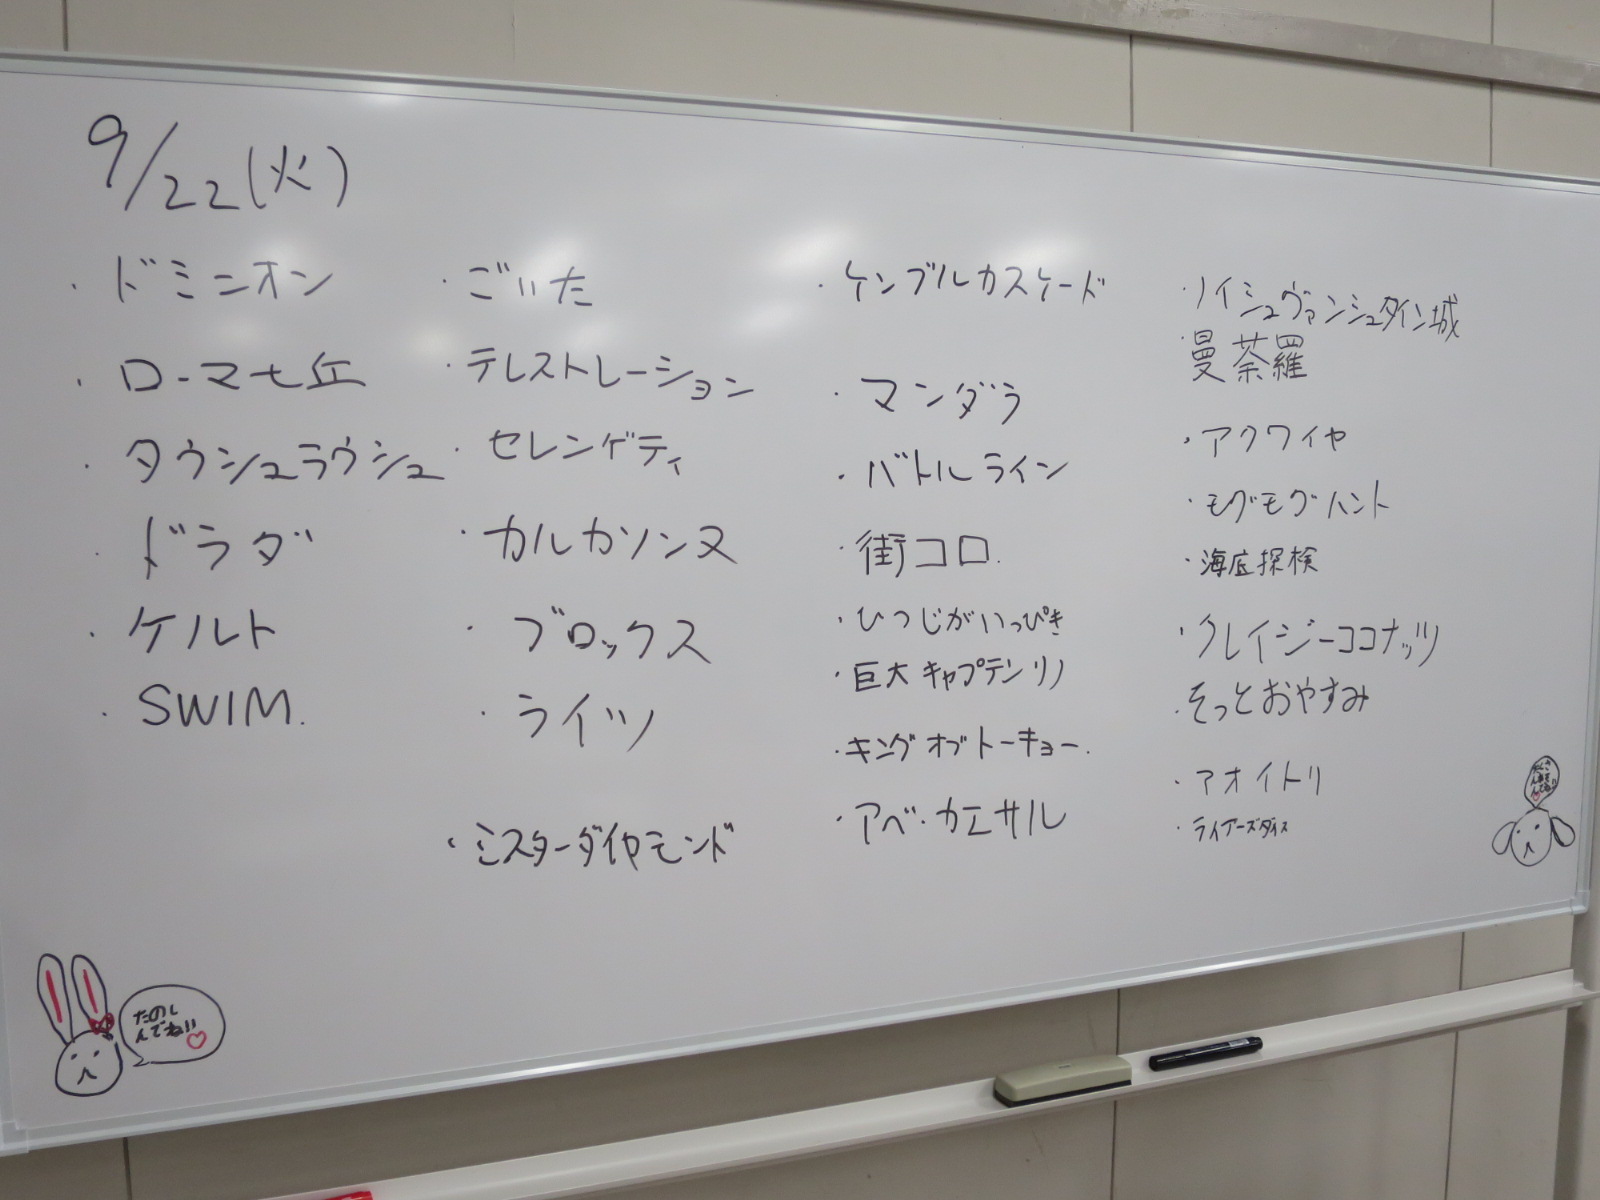 9/22(火)
・ドミニオン
・ローマ七丘
・タウシュラウシュ
・ドラダ
・ケルト
・SWIM.
・ごいた
・テレストレーション
・セレンゲティ
・カルカソンヌ
・ブロックス
・ライツ
・ミスターダイヤモンド
・ケンブルカスケード
・マンダラ
・バトルライン
・街コロ.
・ひつじがいっぴき
・巨大キャプテンリノ
・キングオブトーキョー.
・アベ・カエサル
・ノイシュヴァンシュタイン城
・曼荼羅
・アクワイヤ
・モグモグハント
・海底探検
・クレイジーココナッツ
・そっとおやすみ
・アオイトリ
・ライアーズダイス
たのし
んでね!!